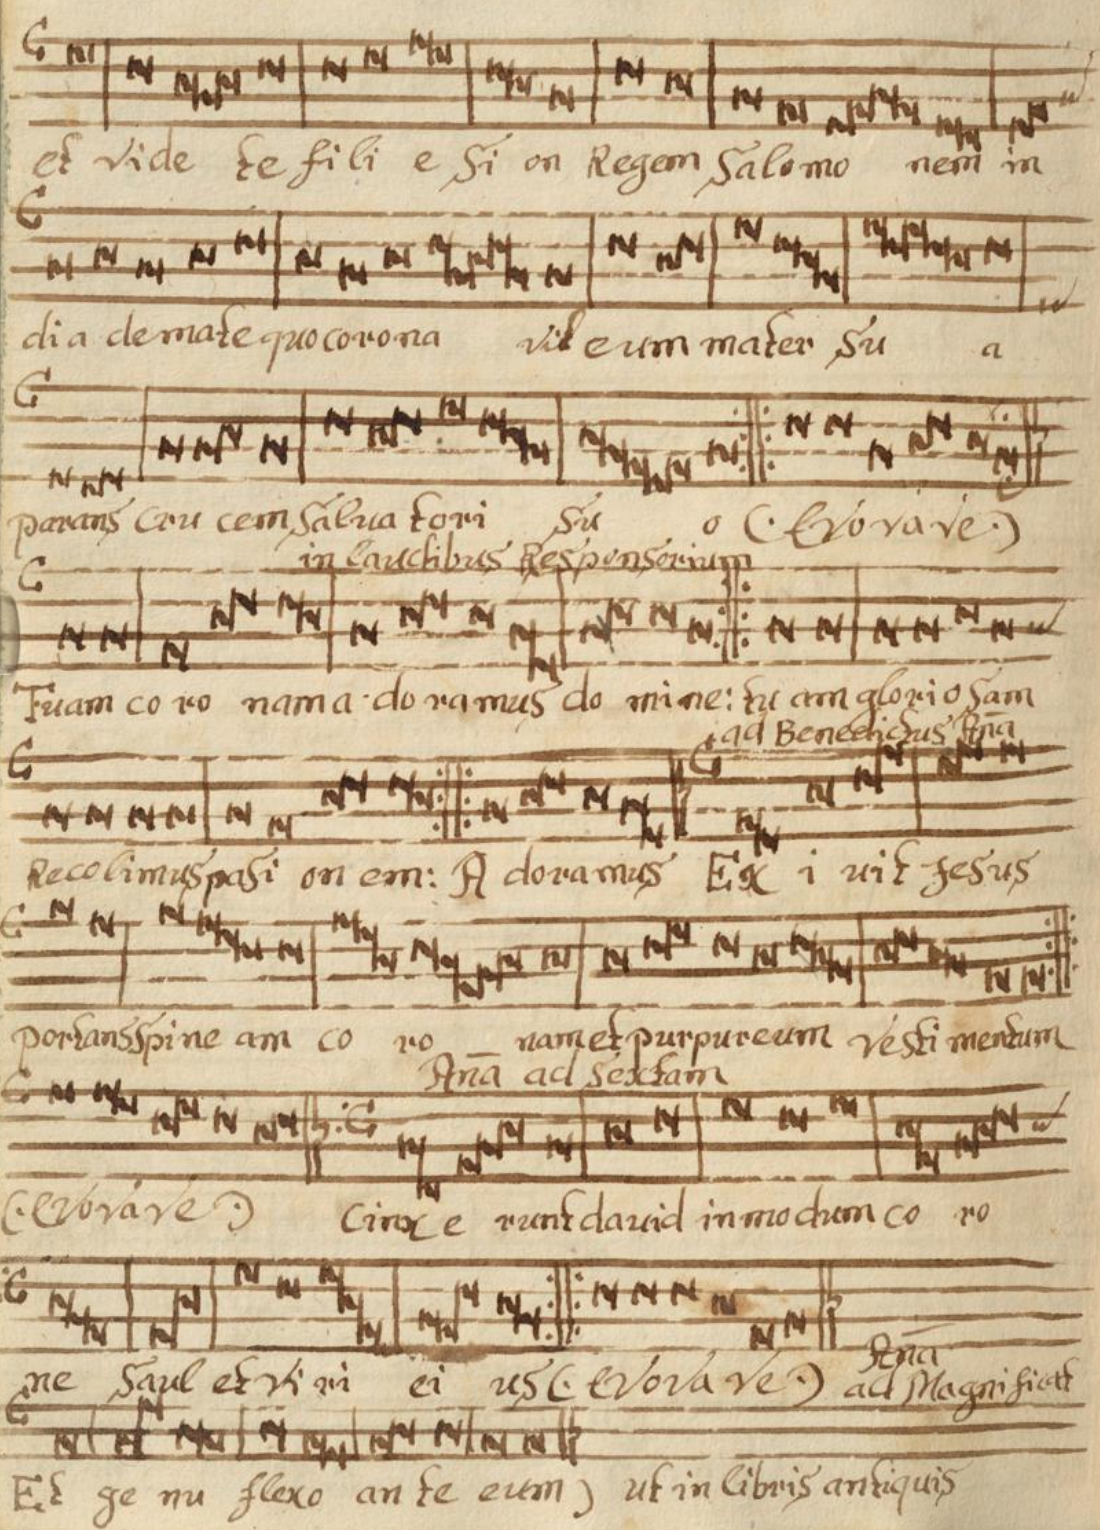 et vide te fili e Si on Regem Salomo nem in
di a demate quo corona vit eum mater Su a
parans cru cem Salua tori Su o (·Evovave·)
in laudibus Responsorium
Tuam co ro nam a do ramus do mine: tu am gloriosam
ad Benedictus Aña
Recolimus pasi on em: A doramus Ex i uit Jesus
portans Spine am co ro nam et purpureum vestimentum
Aña ad Sextam
(·Evovave·) Cinx e runt dauid in modum co ro
ne Saul et vi ri ei us (·Evovave·) Aña
ad Magnificat
Et ge nu flexo an te eum) ut in libris antiquis